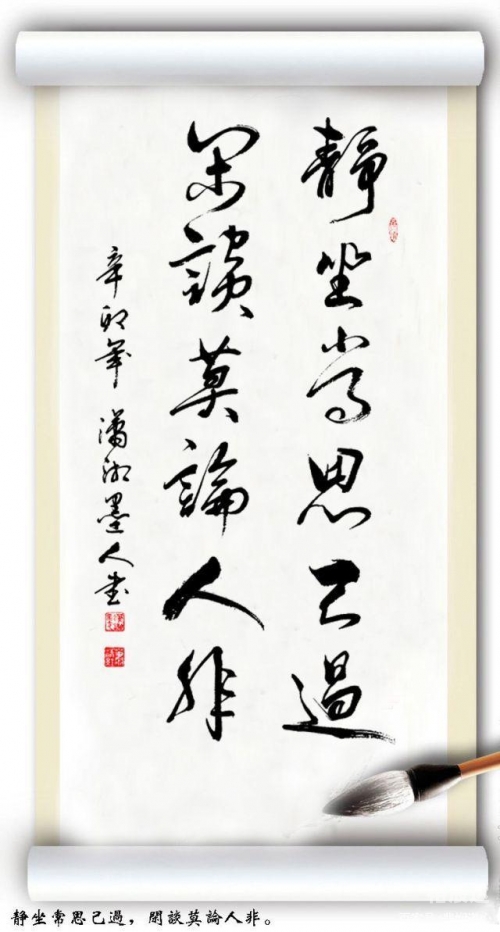 靜坐常思己過
閑談莫論人非
辛卯年 瀟湘墨人書
靜坐常思己過，閑談莫論人非。